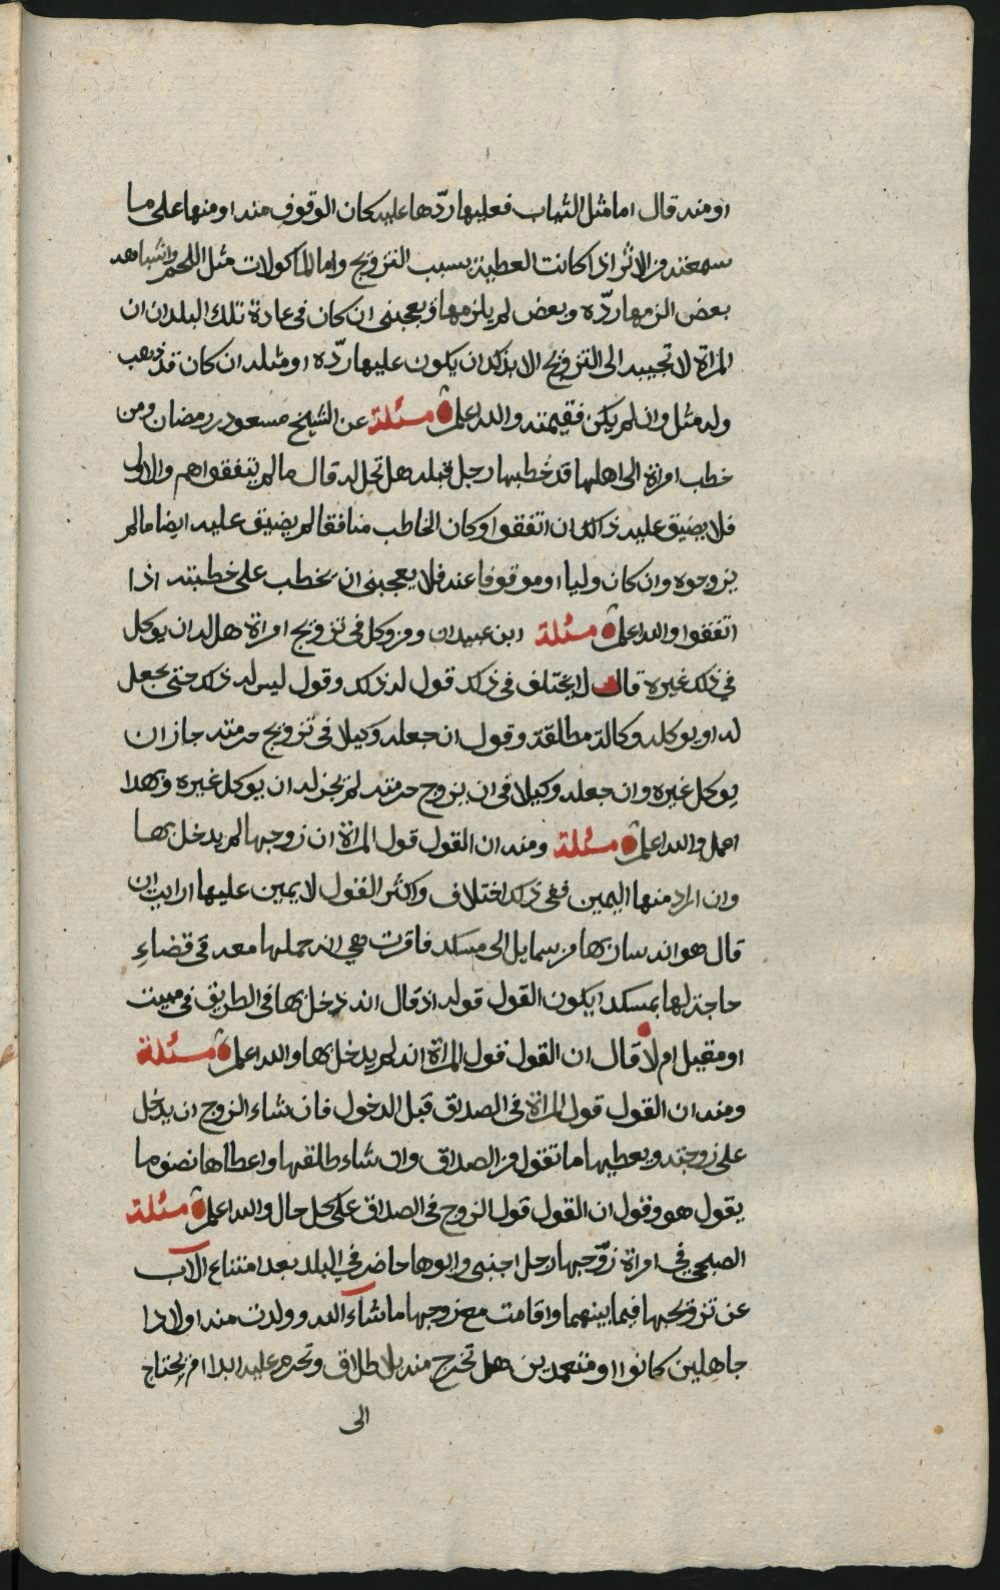 او منه قال اما مثل الثياب فعليها ردّها عليه كان الوقوف منه او منها على ما
سمعته من الاثر اذا كانت العطية بسبب التزويج واما الماكولات مثل اللحم واشباهه
بعض الزمها ردّه وبعض لم يلزمها ويعجبنى ان كان فى عادة تلك البلدان ان
المراة لا تجيبه الى التزويج الا بذلك ان يكون عليها ردّه او مثله ان كان قد ذهب
وله مثل وان لم يكن فقيمته والله اعلم مسئلة عن الشيخ مسعود بن رمضان ومن
خطب امراة الى اهلها قد خطبها رجل قبله هل تحل له قال ما لم يتفقوا هم والاول
فلا يضيق عليه ذلك وان اتفقوا وكان الخاطب منافقا لم يضيق عليه ايضا ما لم
يزوجوه وان كان وليا او موقوفا عنه فلا يعجبنى ان يخطب على خطبته اذا
اتفقوا والله اعلم مسئلة ابن عبيدان ومن وكل فى تزويج امراة هل له ان يوكل
فى ذلك غيره قال يختلف فى ذلك قول له ذلك وقول ليس له ذلك حتى يجعل
له او يوكله وكالة مطلقة وقول ان جعله وكيلا فى تزويج حرمته جاز ان
يوكل غيره وان جعله وكيلا فى ان يزوج حرمته لم يجز له ان يوكل غيره وبهذا
اعمل والله اعلم مسئلة ومنه ان القول قول المراة ان زوجها لم يدخل بها
وان اراد منها اليمين ففى ذلك اختلاف واكثر القول لا يمين عليها ارايت ان
قال هو انه سار بها من سمايل الى مسكد فاقرت هي انه حملها معه فى قضاء
حاجة لها بمسكد ايكون القول قوله اذ قال انه دخل بها فى الطريق فى مبيت
او مقيل ام لا قال ان القول قول المراة انه لم يدخل بها والله اعلم مسئلة
ومنه ان القول قول المراة فى الصداق قبل الدخول فان شاء الزوج ان يدخل
على زوجته ويعطيها ما تقول من الصداق وان شاء طلقها واعطاها نصف ما
يقول هو وقول ان القول قول الزوج فى الصداق على كل حال والله اعلم مسئلة
الصبحي في امراة زوّجها رجل اجنبي وابوها حاضر في البلد بعد امتناع الاب
عن تزويجها فيما بينهما واقامت مع زوجها ما شاء الله وولدت منه اولادا
جاهلين كانوا او متعمدين هل تخرج منه بلا طلاق وتحرم عليه ابدا ام يحتاج
الى